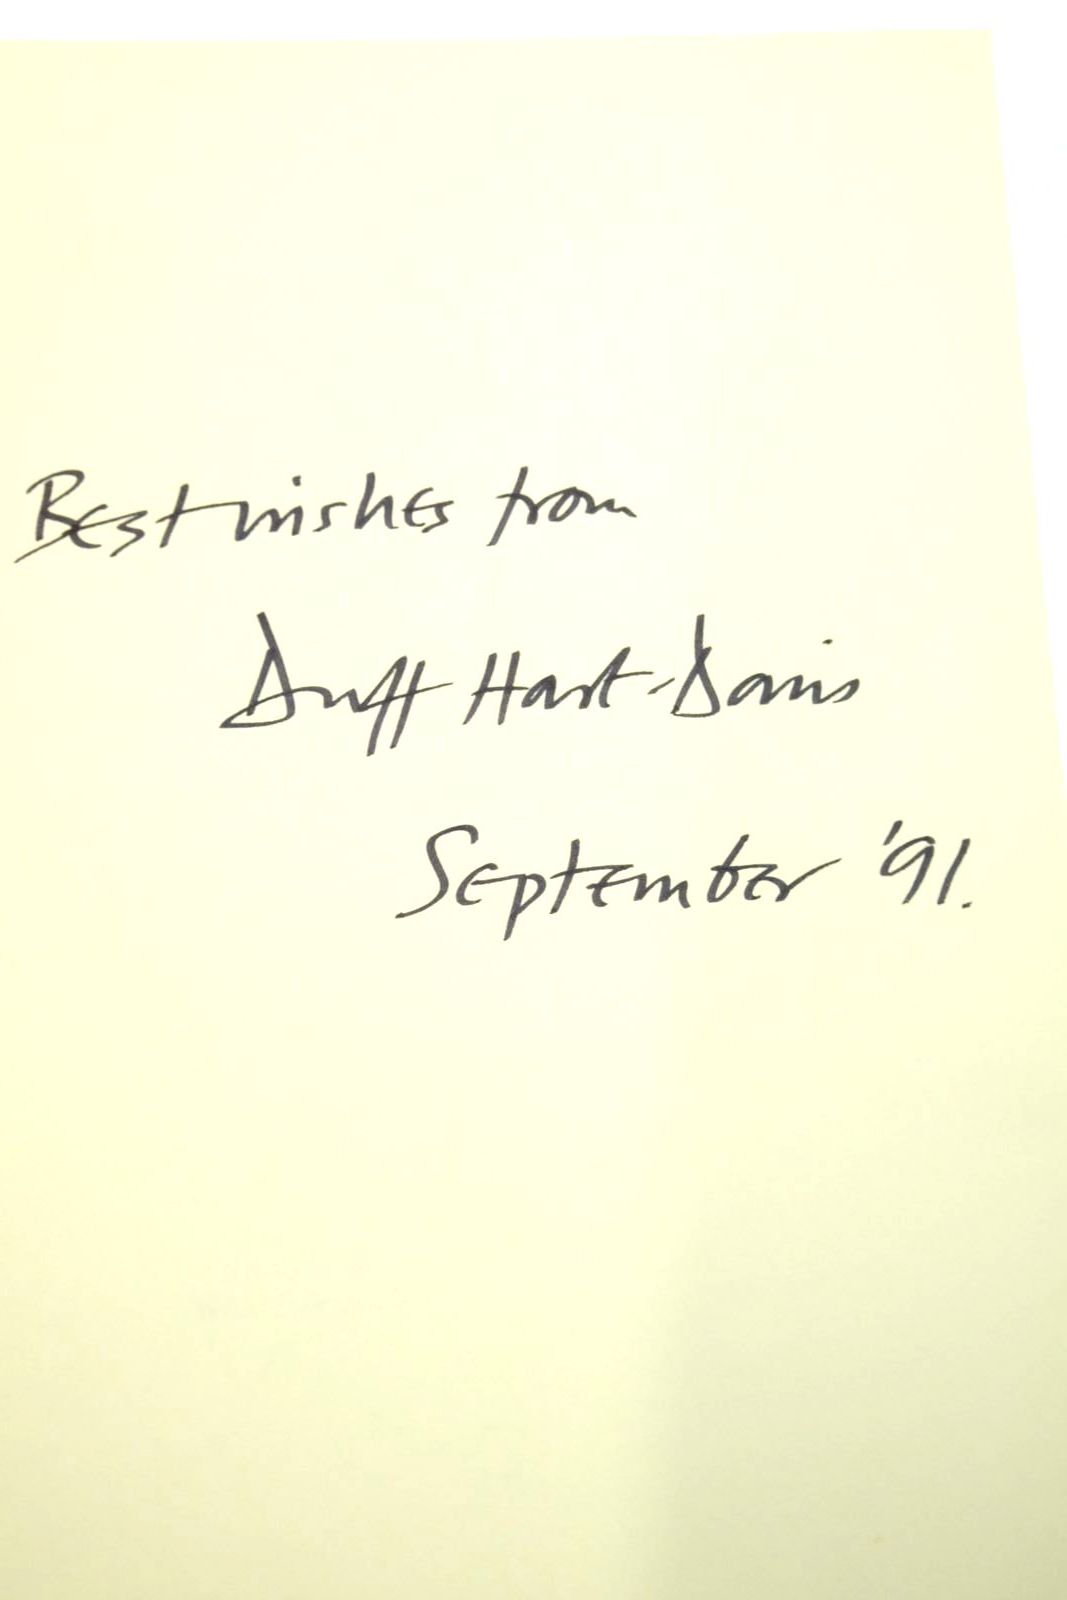 Best wishes from
Duff Hart-Davis
September '91.